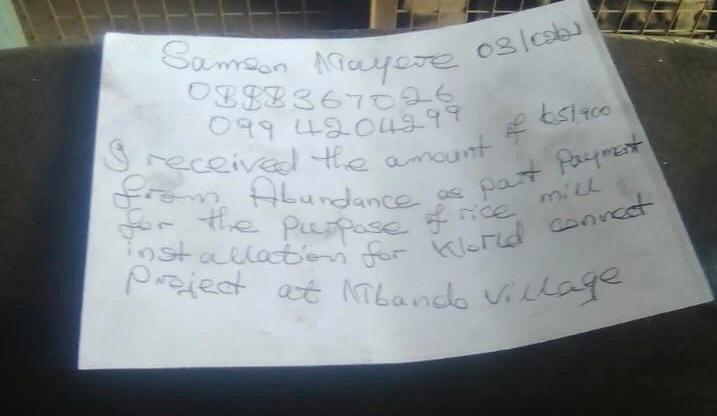 Samson Mayere 03/
0888367026
0994204299
I received the amount of K51,900
from Abundance as part payment
for the purpose of rice mill
installation for World connect
Project at Mbando village